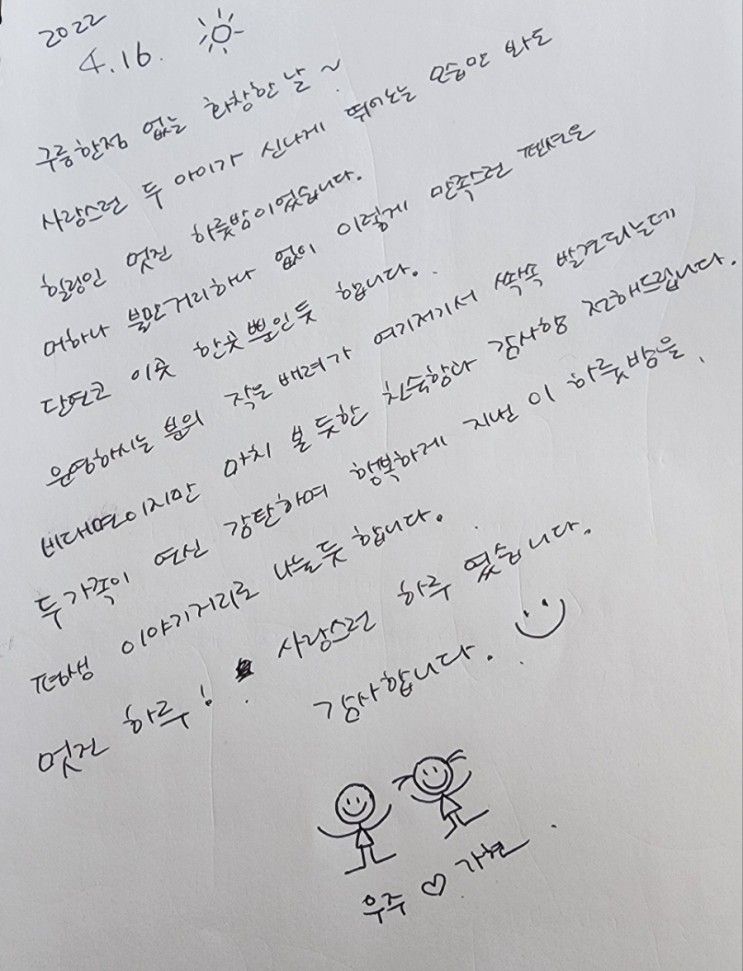 2022
4.16.
구름한점 없는 화창한 날 ~
사랑스런 두 아이가 신나게 뛰어노는 모습만 봐도
힐링인 멋진 하룻밤이었습니다.
머하나 불만거리하나 없이 이렇게 만족스런 펜션은
단연코 이곳 한곳뿐인듯 합니다.
운영하시는 분의 작은 배려가 여기저기서 쏙쏙 발견되는데
비대면이지만 마치 본 듯한 친숙함과 감사함 전해드립니다.
두가족이 연신 감탄하며 행복하게 지낸 이 하룻밤을,
평생 이야기거리로 나눌듯 합니다.
멋진 하루! 사랑스런 하루 였습니다.
감사합니다.
우주 ♡ 가현.